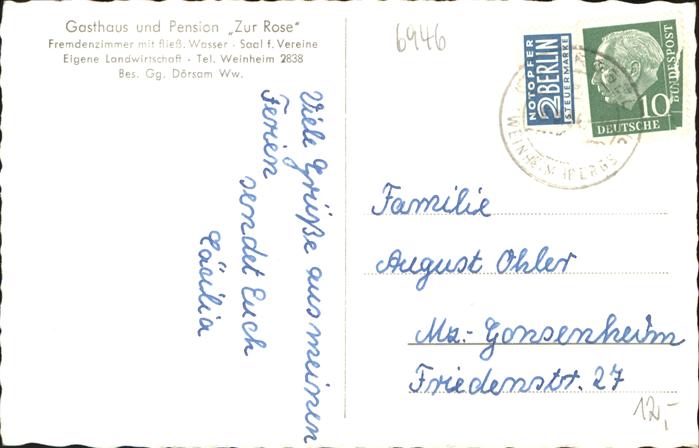 Gasthaus und Pension „Zur Rose"
Fremdenzimmer mit fließ. Wasser · Saal f. Vereine
Eigene Landwirtschaft · Tel. Weinheim 2838
Bes. Gg. Dörsam Ww.
Viele Grüße aus meinen
Ferien
sendet Euch
Cäsilia
6946
NOTOPFER
2 BERLIN
STEUERMARKE
BUNDESPOST
10
DEUTSCHE
WEINHEIM (BERGSTR
Familie
August Ohler
Mz.- Gonsenheim
Friedenstr. 27
12,-